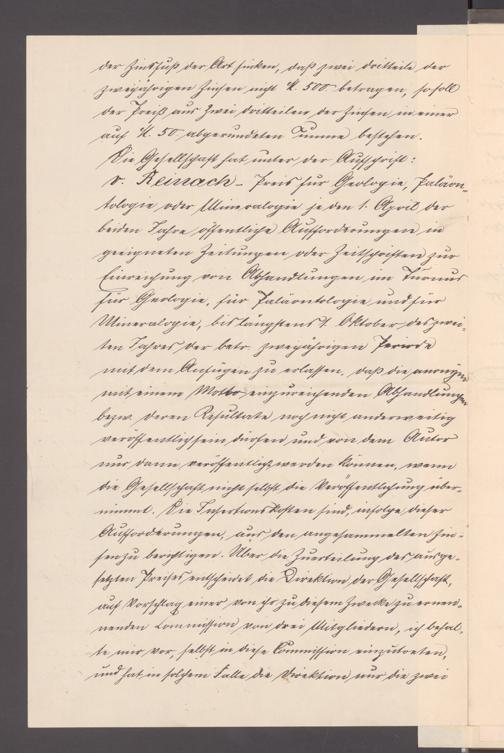 der Zinsfuß der Art sinken, daß zwei dritteile der
zweijährigen Zinsen nicht M. 500 betragen, so soll
der Preis aus zwei dritteilen der Zinsen in einer
auf M. 50 abgerundeten Summe bestehen.
Die Gesellschaft hat unter der Aufschrift:
v. Reinach-Preis für Geologie, Paläon-
tologie oder Mineralogie je den 1. April der
beiden Jahre öffentliche Aufforderungen in
geeigneten Zeitungen oder Zeitschriften zur
Einreichung von Abhandlungen im Turnus
für Geologie, für Paläontologie und für
Mineralogie, bis längstens 1. Oktober des zwei-
ten Jahres der betr. zweijährigen Periode
mit dem Anfügen zu erlassen, daß die anonym
mit einem Motto einzureichenden Abhandlungen
bezw. deren Resultate noch nicht anderweitig
veröffentlicht sein dürfen und von dem Autor
nur dann veröffentlicht werden können, wenn
die Gesellschaft nicht selbst die Veröffentlichung über-
nimmt. Die Insertionskosten sind, infolge dieser
Aufforderungen, aus den angesammelten Zin-
sen zu berichtigen. Über die Zuerteilung des ausge-
setzten Preises entscheidet die Direktion der Gesellschaft,
auf Vorschlag einer von ihr zu diesem Zwecke zu ernen-
nenden Commission von drei Mitgliedern, ich behal-
te mir vor, selbst in diese Commission einzutreten,
und hat in solchem Falle die Direktion nur die zwei